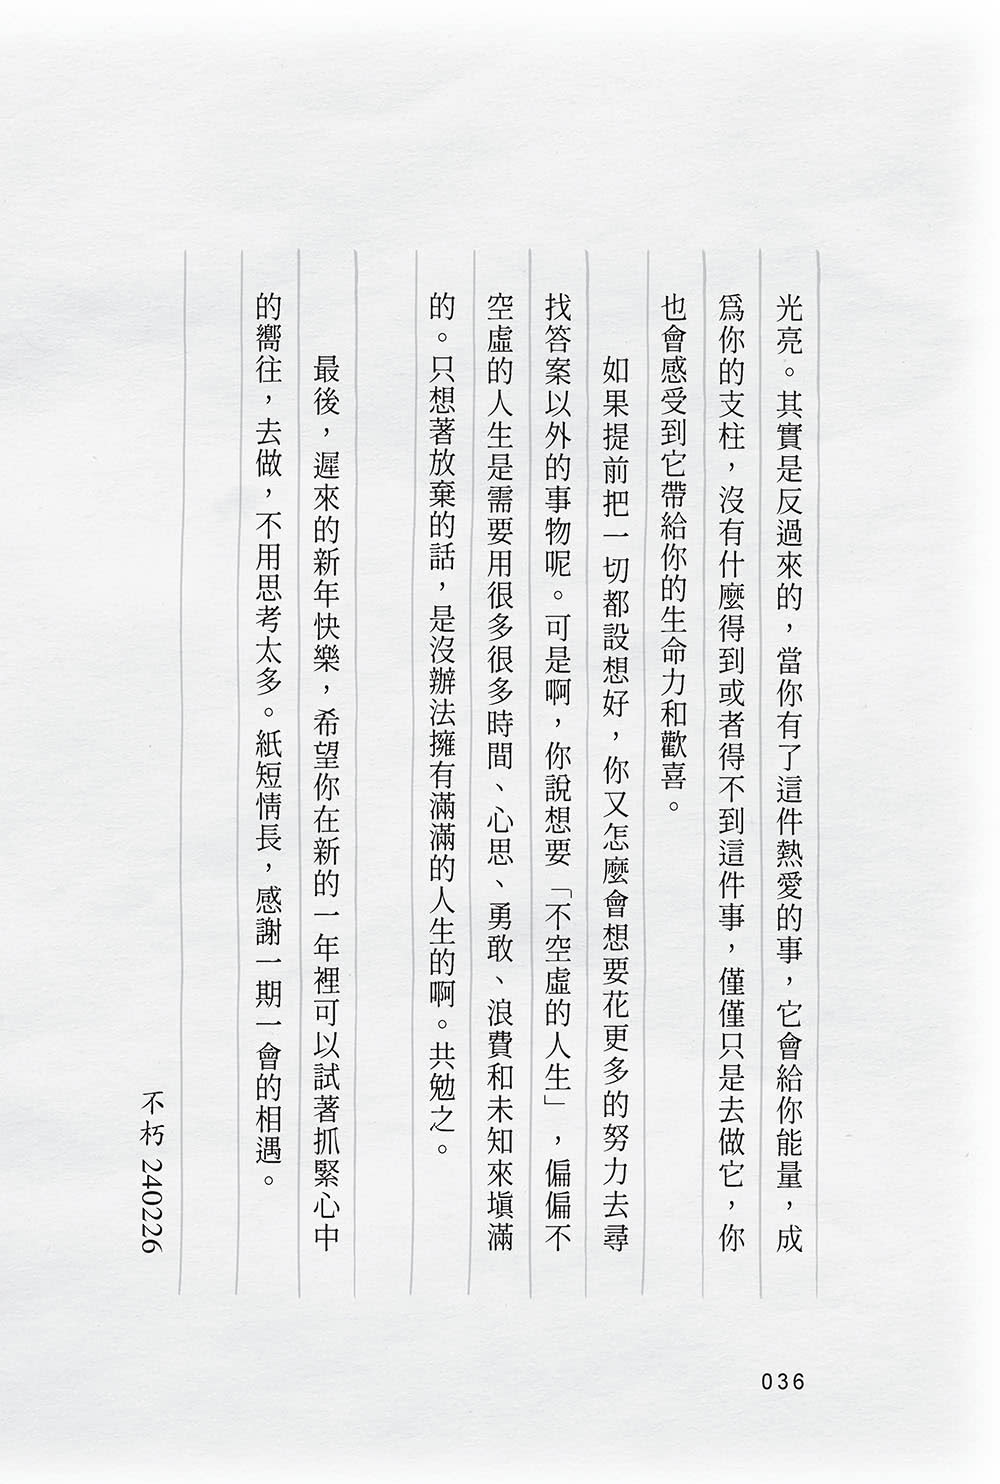 光亮。其實是反過來的，當你有了這件熱愛的事，它會給你能量，成
爲你的支柱，沒有什麼得到或者得不到這件事，僅僅只是去做它，你
也會感受到它帶給你的生命力和歡喜。
如果提前把一切都設想好，你又怎麼會想要花更多的努力去尋
找答案以外的事物呢。可是啊，你說想要「不空虛的人生」，偏偏不
空虛的人生是需要用很多很多時間、心思、勇敢、浪費和未知來塡滿
的。只想著放棄的話，是沒辦法擁有滿滿的人生的啊。共勉之。
最後，遲來的新年快樂，希望你在新的一年裡可以試著抓緊心中
的嚮往，去做，不用思考太多。紙短情長，感謝一期一會的相遇。
不朽 240226
036